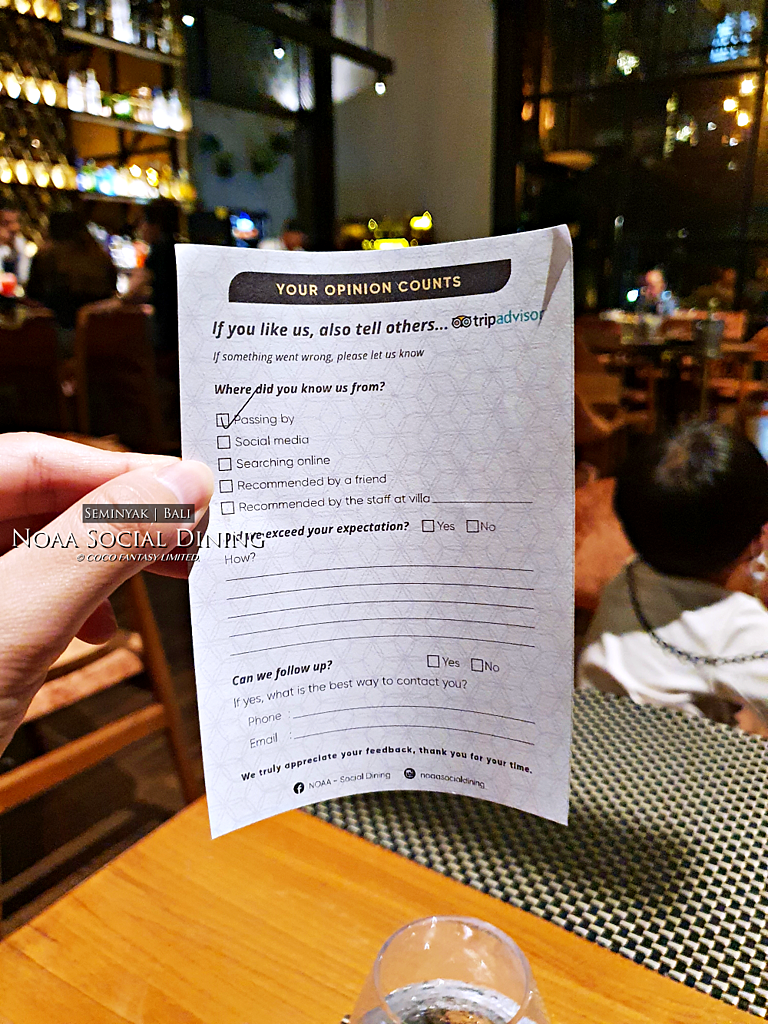 YOUR OPINION COUNTS
If you like us, also tell others... tripadvisor
If something went wrong, please let us know
Where did you know us from?
Passing by
Social media
Searching online
Recommended by a friend
Recommended by the staff at villa
Did we exceed your expectation? Yes No
How?
Can we follow up? Yes No
If yes, what is the best way to contact you?
Phone :
Email :
We truly appreciate your feedback, thank you for your time.
NOAA - Social Dining noaasocialdining
SEMINYAK | BALI
NOAA SOCIAL DINING
© COCO FANTASY LIMITED.